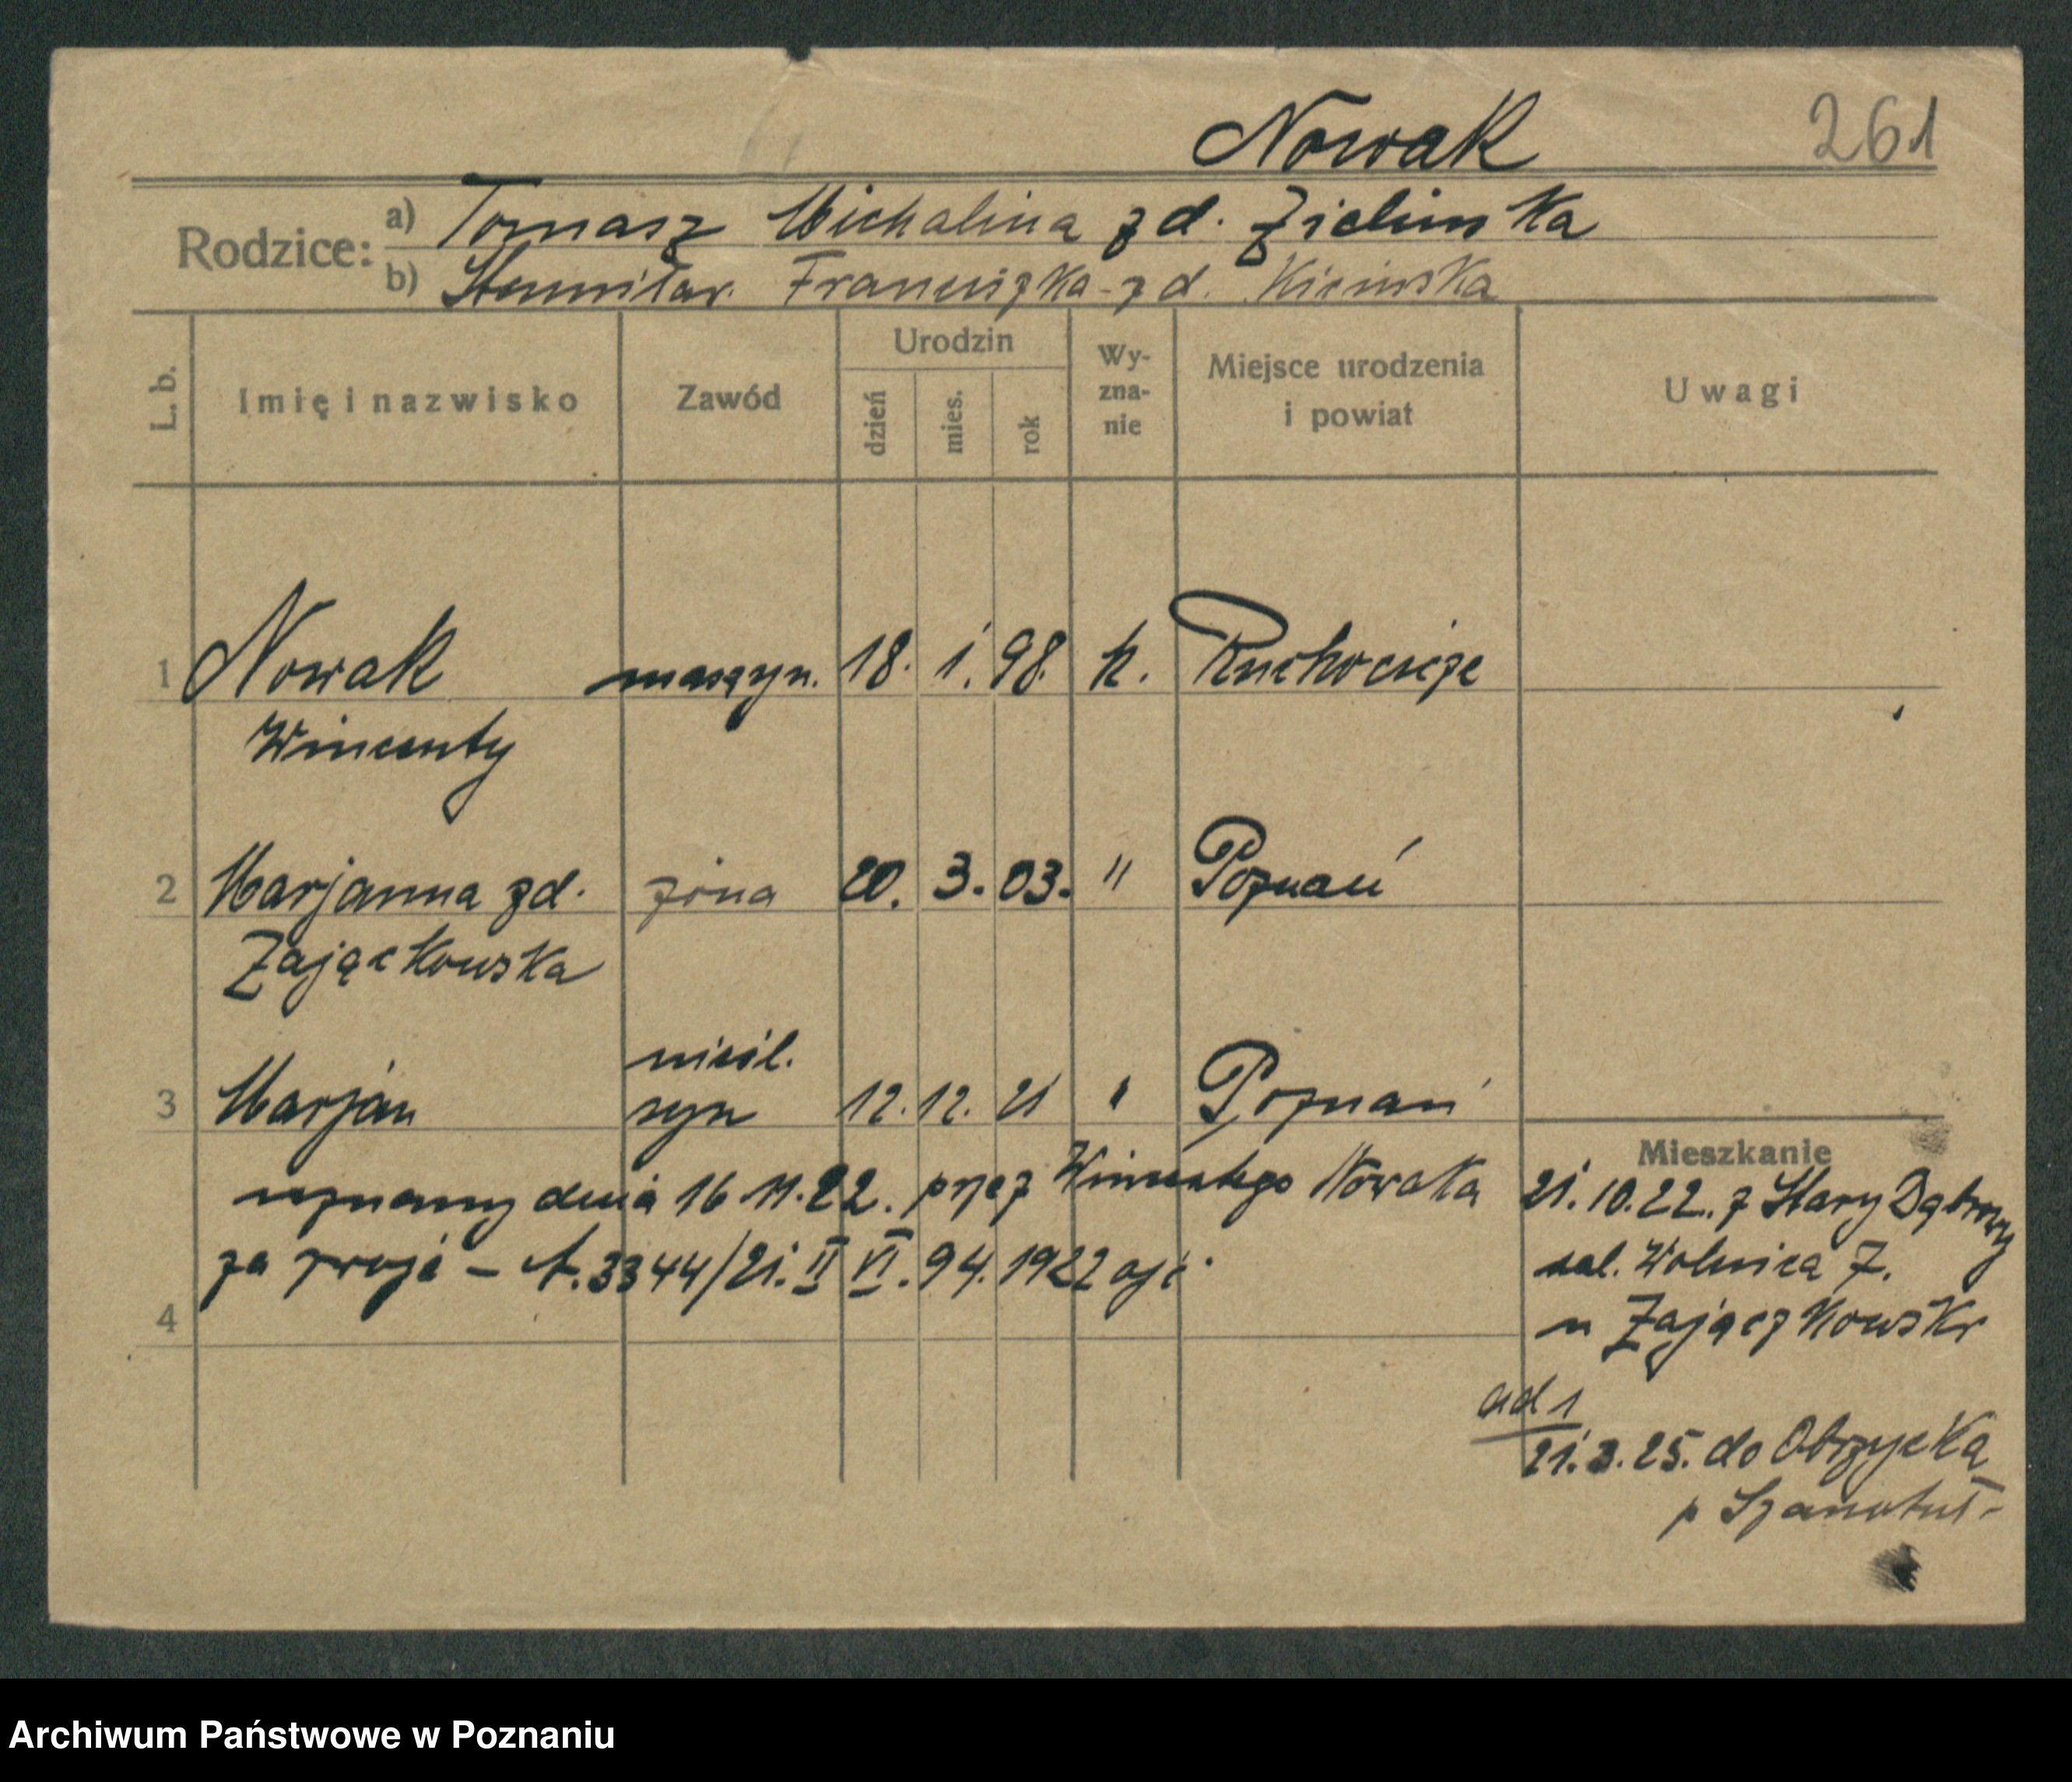 Nowak 261
Rodzice: a) Tomasz Michalina zd. Zielinska
b) Stanisław Franciszka zd. Kicinska
L. b. Imię i nazwisko Zawód Urodzin dzień mies. rok Wy-zna-nie Miejsce urodzenia i powiat Uwagi
1 Nowak maszyn. 18. 1. 98. k. Ruchocice
Wincenty
2 Marjanna zd. żona 20. 3. 03. " Poznań
Zajączkowska
nieśl.
3 Marjan syn 12. 12. 21 " Poznań
Mieszkanie
uznany dnia 16 11. 22. przez Wincentego Nowaka
za swoje - A. 3344/21. II VI. 94. 1922
4
21. 10. 22. z Stary Dąbrowy
Wolnica 7.
u Zajączkowski
ad 1
21. 3. 25. do Obrzycka
p Szamotuł-
Archiwum Państwowe w Poznaniu